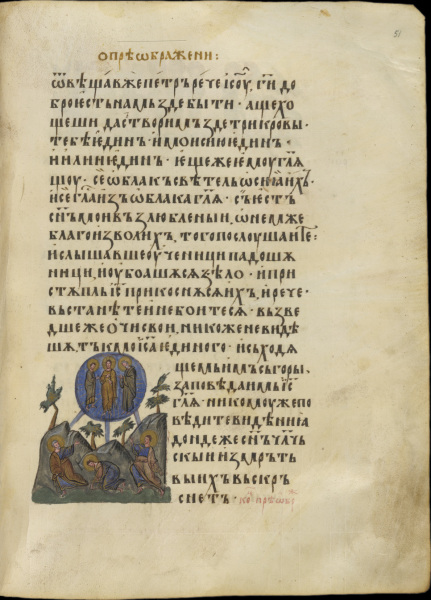 51
О ПРѢѠБРАЖЕНИ:
ѾВѢЩАВЖЕПЕТРЪРЕЧЕІСОУ҅. Г҃НДО
БРОІЕСТЬНАМЬЗДЕБЫТИ · АЩЕХО
ЩЕШИДАСТВОРИМЪЗДЕТРИКРОВЫ ·
ТЕБѢІЕДИНЪ · ИМОИСИЮІЕДИНЪ ·
ИИЛИИІЕДИНЪ · ІЕЩЕЖЕІЕМОУГЛ҃Ѧ
ШОУ · СЕѠБЛАКЪСВѢТЕЛЪѠСѢНИИХЪ ·
ИСЕГЛ҃АИЗЪѠБЛАКАГЛ҃Ѧ · СЪІЕСТЪ
СН҃ЪМОИВЪЗЛЮБЛЕНЫИ, ѠНЕМЖЕ
БЛАГОИЗВОЛИХЪ, ТОГОПОСЛОУШАИТЕ:
ИСЛЫШАВШЕОУЧЕНИЦИПАДОШѦ
НИЦИ, ИОУБОАШѦСѦЗѢЛО · ИПРИ
СТѪПЛЬІС҃ПРИКОСНѪСѦИХЪ, ИРЕЧЕ ·
ВЬСТАНѢТЕИНЕБОИТЕСѦ · ВЬЗВЕ
ДШЕЖЕОЧИСВОИ, НИКОЖЕНЕВИДѢ
ШѦТЪКМОІС҃АІЕДИНОГО · ИСЬХОДѦ
ЩЕМЬИМЪСЬГОРЫ,
ЗАПОВѢДАИМЬІС҃
ГЛ҃Ѧ · НИКОМОУЖЕПО
ВѢДИТЕВИДѢНІА
ДОНДЕЖЕСН҃ЪЧЛ҃ЧЬ
СКЫИИЗМРЬТЬ
ВЫИХЪВЬСКРЪ
СНЕТЪ ·